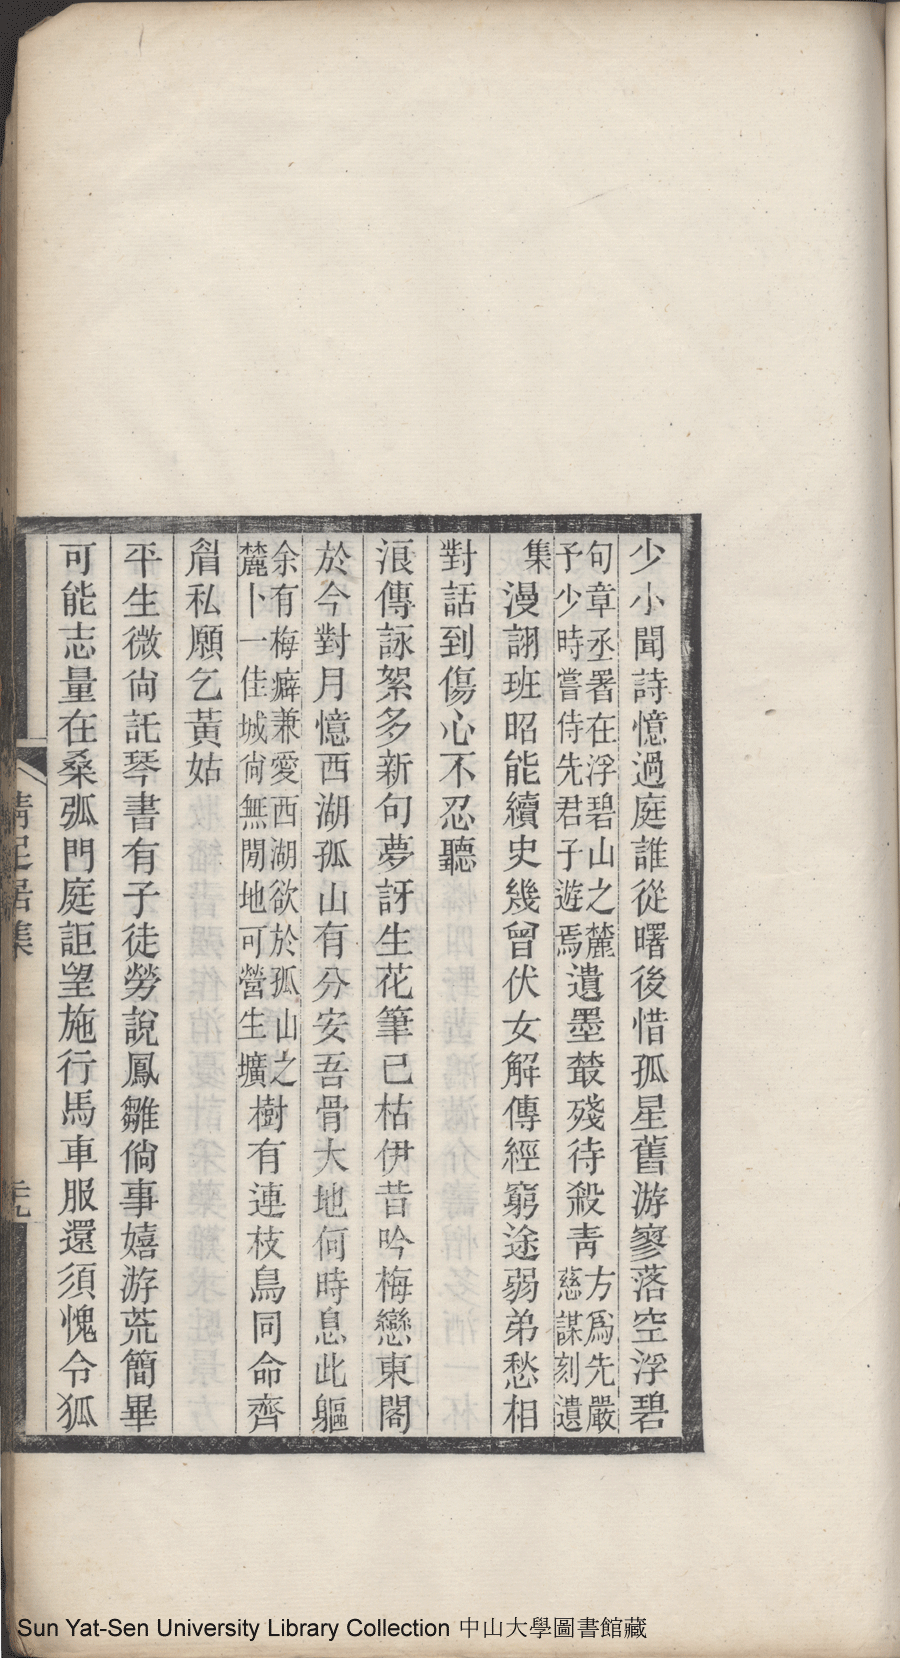 少小聞詩憶過庭誰從曙後惜孤星舊游寥落空浮碧
句章丞署在浮碧山之麓
予少時嘗侍先君子遊焉
遺墨叢殘待殺青
方爲先嚴
慈謀刻遺
集
漫詡班昭能續史幾曾伏女解傳經窮途弱弟愁相
對話到傷心不忍聽
浪傳詠絮多新句夢訝生花筆已枯伊昔吟梅戀東閣
於今對月憶西湖孤山有分安吾骨大地何時息此軀
余有梅癖兼愛西湖欲於孤山之
麓卜一佳城尙無閒地可營生壙
樹有連枝鳥同命齊
眉私願乞黃姑
平生微尙託琴書有子徒勞說鳳雛倘事嬉游荒簡畢
可能志量在桑弧門庭詎望施行馬車服還須愧令狐
清足居集
Sun Yat-Sen University Library Collection 中山大學圖書館藏